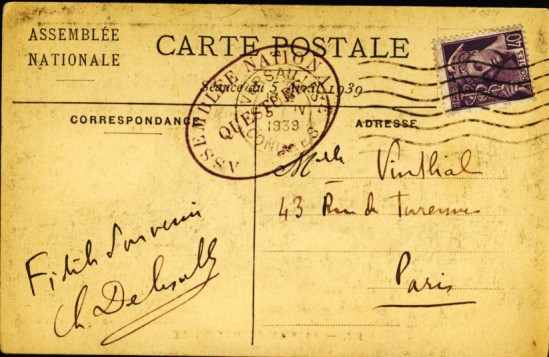 ASSEMBLÉE
NATIONALE
CARTE POSTALE
Séance du 5 Avril 1939
ASSEMBLÉE NATIONALE
QUESTURE
VERSAILLES
5 IV
1939
CONGRES
POSTES 40
CORRESPONDANCE
ADRESSE
Melle
43 Rue de Turenne
Paris
Fidèle souvenir
Ch